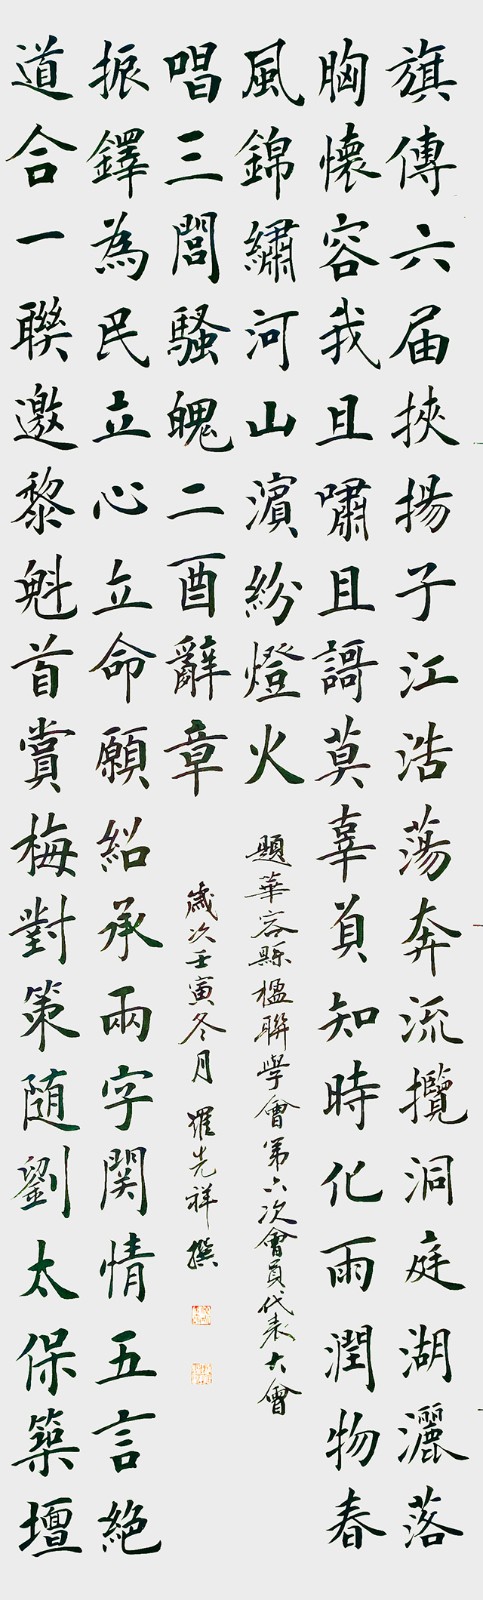 旗傳六届挾揚子江浩蕩奔流攬洞庭湖灑落
胸懷容我且嘯且謌莫辜負知時化雨潤物春
風錦繡河山濱紛燈火
題華容縣楹聯學會第六次會員代表大會
道合一聯邀黎魁首賞梅對策随劉太保築壇
振鐸為民立心立命願紹承兩字関情五言絶
唱三閭騷魄二酉辭章
歲次壬寅冬月 羅先祥 撰